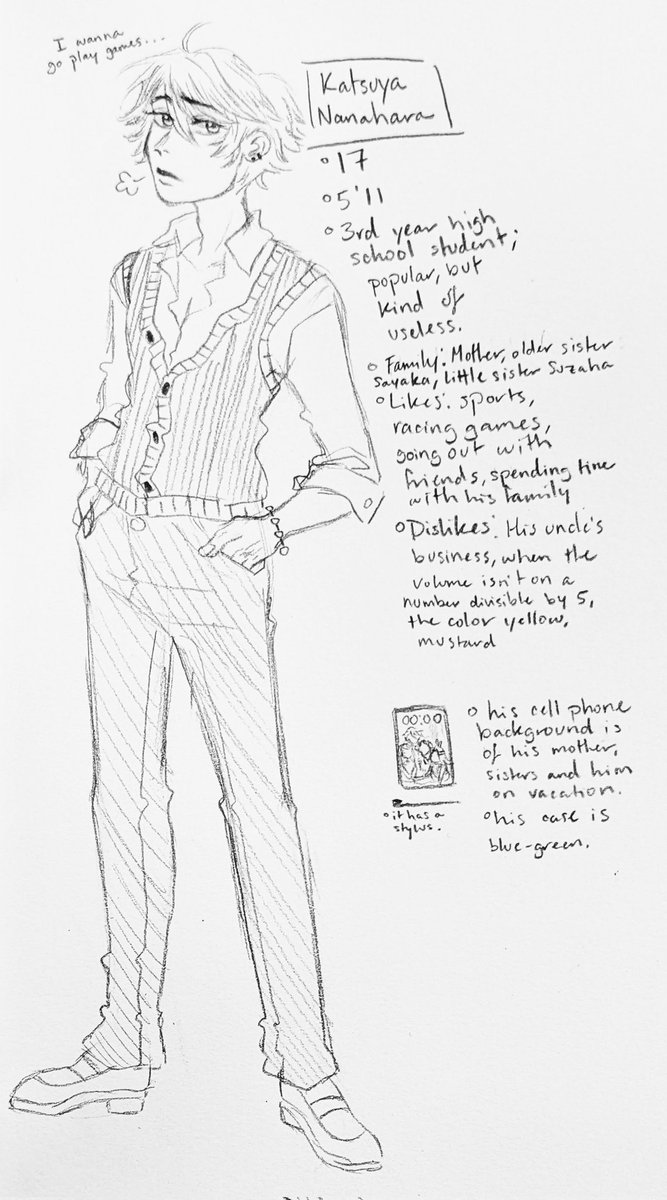 I wanna
go play games...
Katsuya
Nanahara
17
5'11
3rd year high
school student;
popular, but
kind of
useless.
Family: Mother, older sister
Sayaka, little sister Suzaha
Likes: sports,
racing games,
going out with
friends, spending time
with his family
Dislikes: His uncle's
business, when the
volume isn't on a
number divisible by 5,
the color yellow,
mustard
00:00
his cell phone
background is
of his mother,
sisters and him
on vacation.
it has a
stylus.
his case is
blue-green.